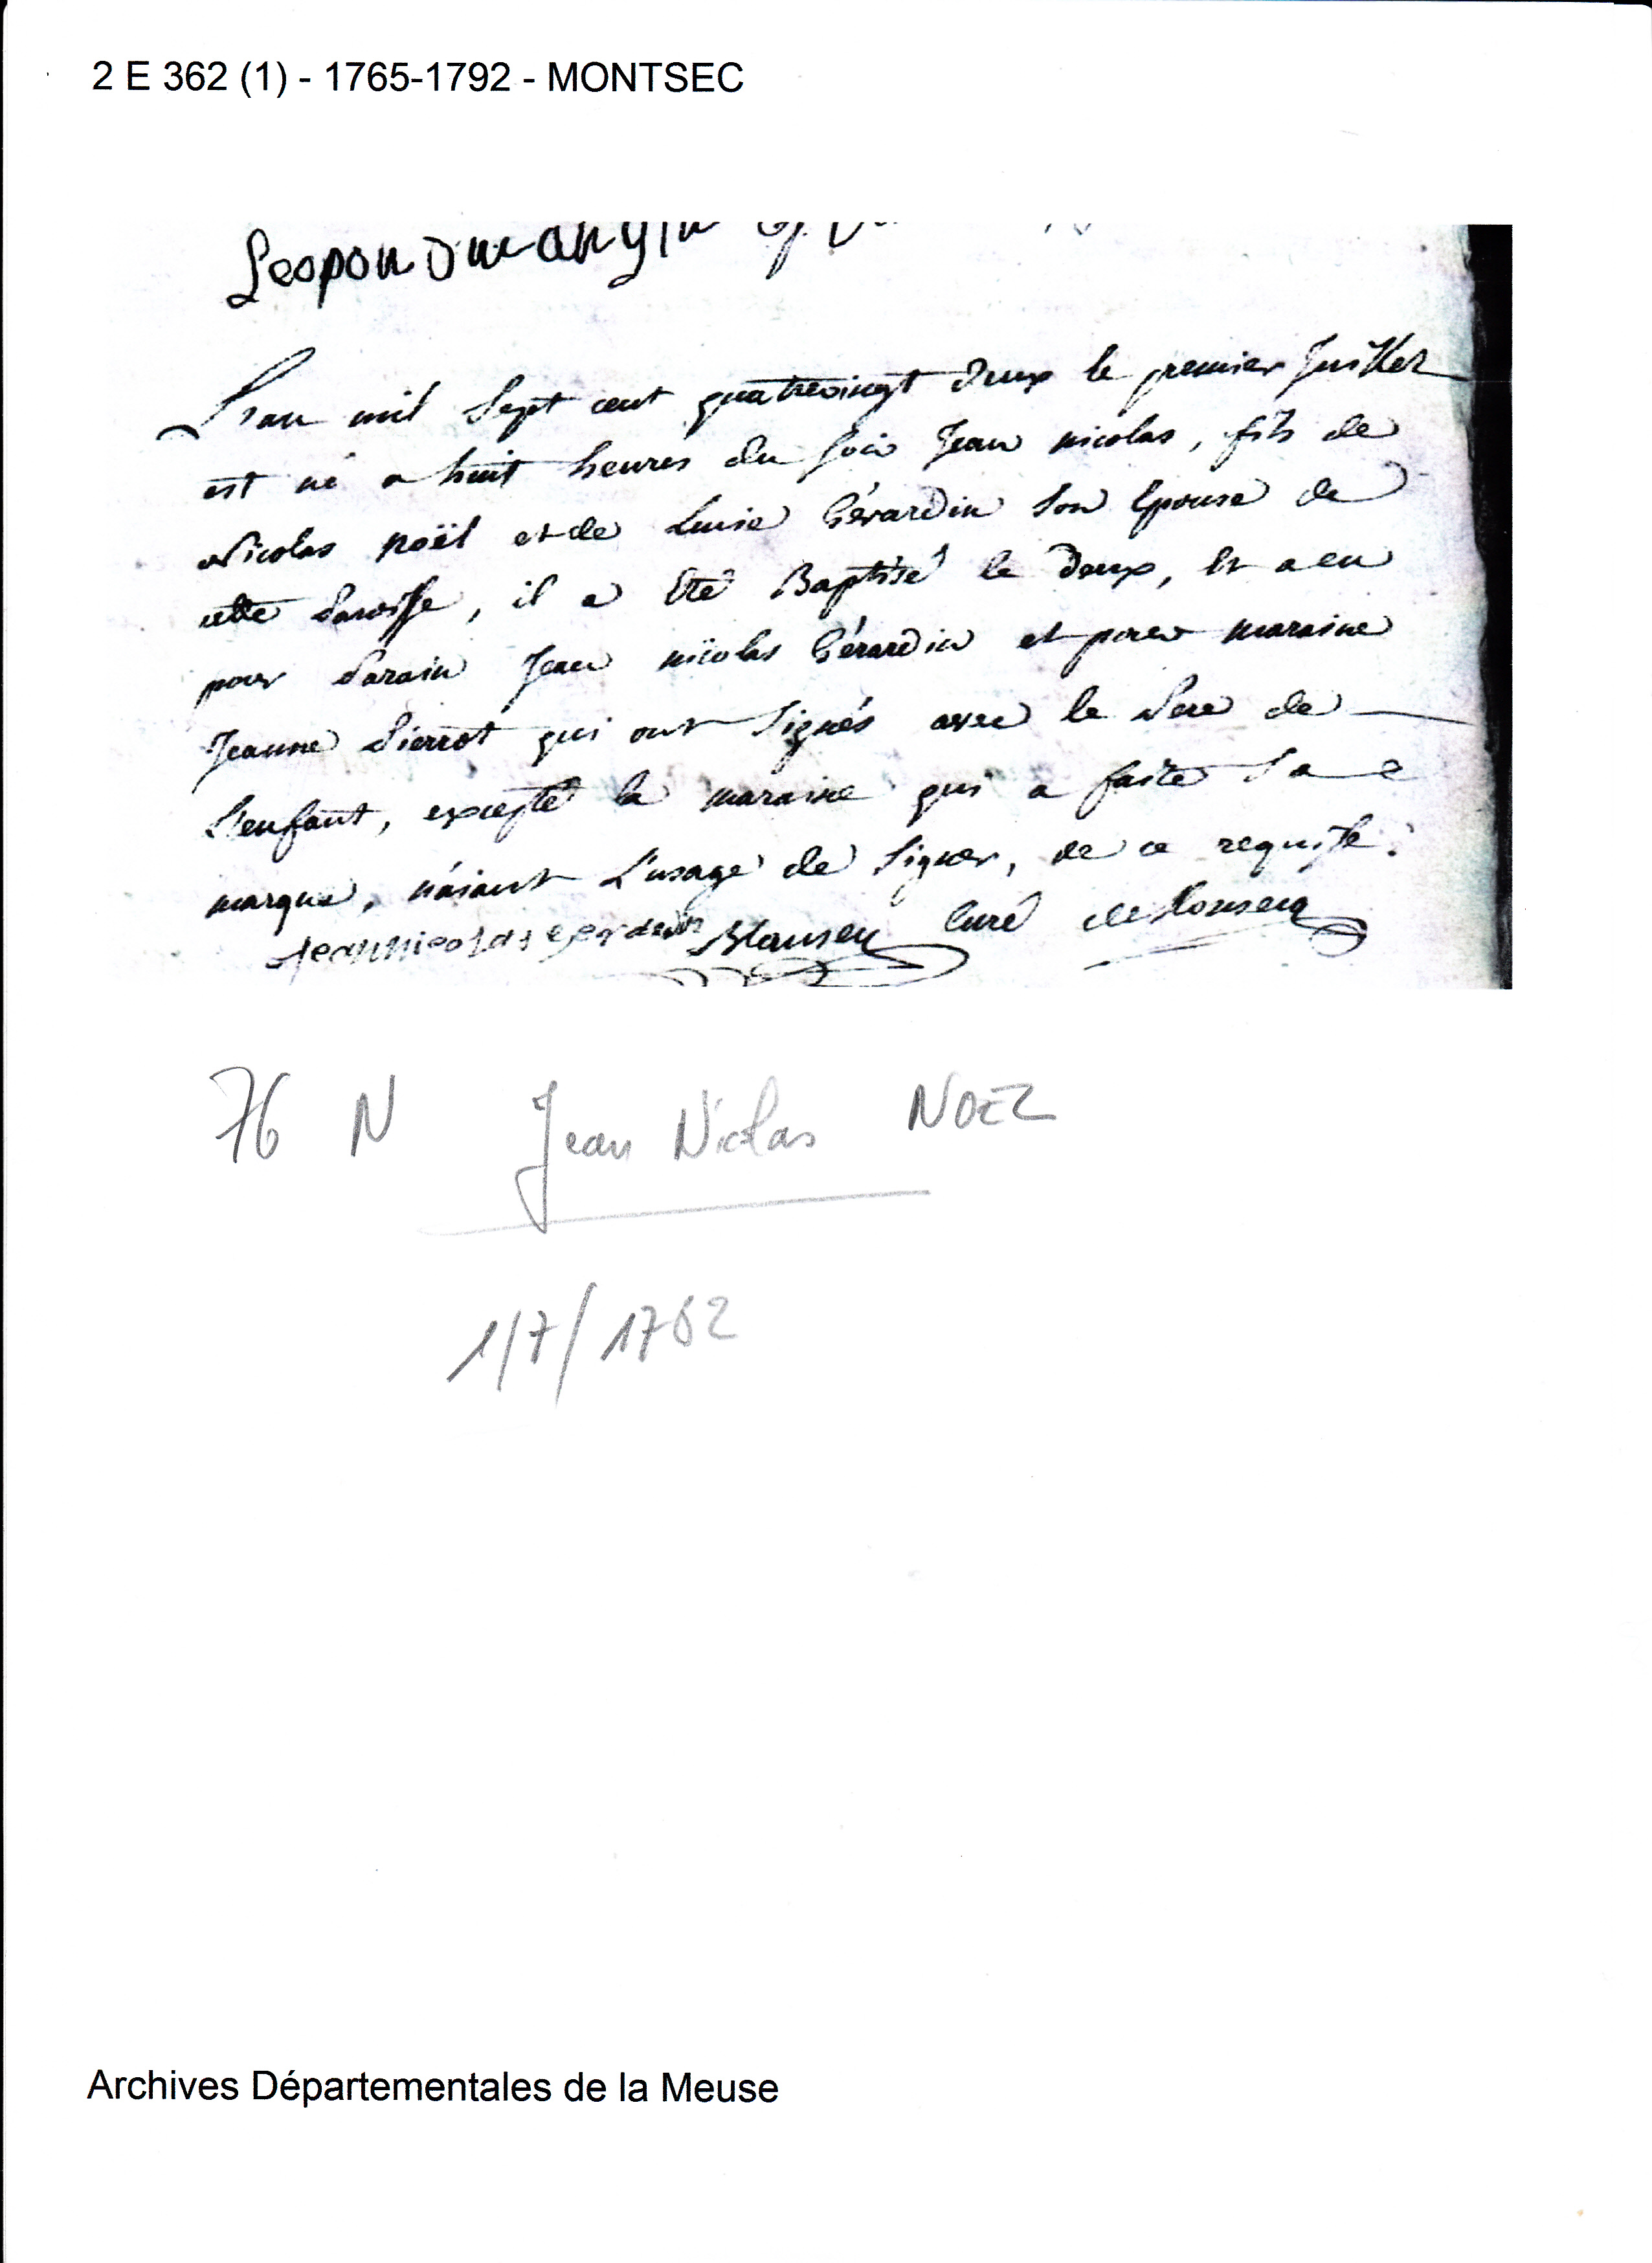 2 E 362 (1) - 1765-1792 - MONTSEC
Leopon D mangin
L'an mil Sept cent quatrevingt deux le premier Juillet
est né a huit heures du soir Jean nicolas, fils de
Nicolas noël et de Lucie Gérardin Son Epouse de
cette Paroisse, il a Eté Baptisé le deux, Et a eu
pour Parain Jean nicolas Gérardin et pour maraine
Jeanne Pierrot qui ont Signés avec le Pere de
L'enfant, excepté la maraine qui a faite Sa
marque, n'aiant L'usage de Signer, de ce requise.
jean nicolas gerardin Curé de Monsecq
76 N Jean Nicolas NOEL
1/7/1782
Archives Départementales de la Meuse